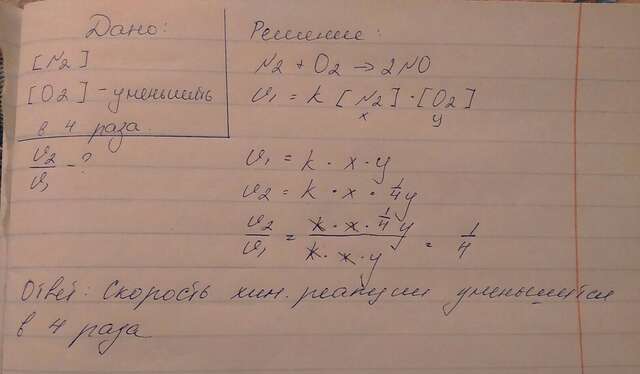 Дано:
[N2]
[O2] - уменьшить
в 4 раза
υ2/υ1 - ?
Решение:
N2 + O2 → 2NO
υ1 = k [N2] · [O2]
x y
υ1 = k · x · y
υ2 = k · x · 1/4 y
υ2/υ1 = k · x · 1/4 y / k · x · y = 1/4
Ответ: Скорость хим. реакции уменьшится
в 4 раза